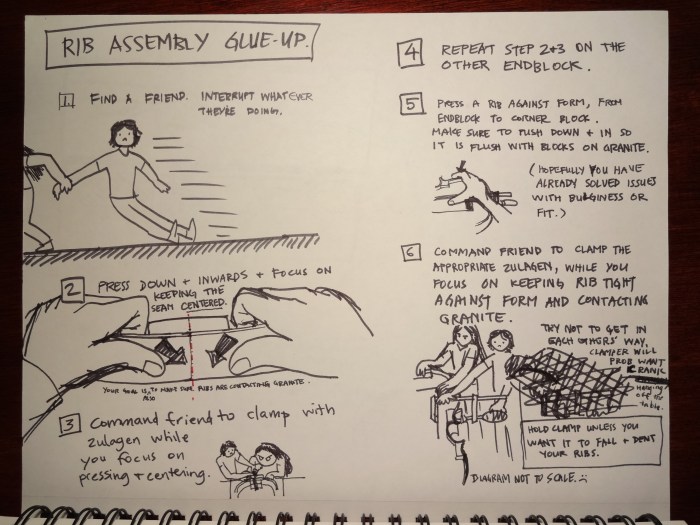 RIB ASSEMBLY GLUE-UP.
1. FIND A FRIEND. INTERRUPT WHATEVER
THEY'RE DOING.
2 PRESS DOWN + INWARDS + FOCUS ON
KEEPING THE
SEAM CENTERED.
YOUR GOAL IS TO MAKE SURE RIBS ARE CONTACTING GRANITE.
ALSO
3 Command friend to clamp with
zulagen while
you focus on
pressing + centering.
4 REPEAT STEP 2+3 ON THE
OTHER ENDBLOCK.
5 PRESS A RIB AGAINST FORM, FROM
ENDBLOCK TO CORNER BLOCK.
MAKE SURE TO PUSH DOWN + IN SO
IT IS FLUSH WITH BLOCKS ON GRANITE.
(HOPEFULLY YOU HAVE
ALREADY SOLVED ISSUES
WITH BULGINESS OR
FIT.)
6 COMMAND FRIEND TO CLAMP THE
APPROPRIATE ZULAGEN, WHILE YOU
FOCUS ON KEEPING RIB TIGHT
AGAINST FORM AND CONTACTING
GRANITE.
TRY NOT TO GET IN
EACH OTHERS' WAY.
CLAMPER WILL
PROB WANT
CRANK
HANGING
OFF
TABLE.
HOLD CLAMP UNLESS YOU
WANT IT TO FALL + DENT
YOUR RIBS.
DIAGRAM NOT TO SCALE.